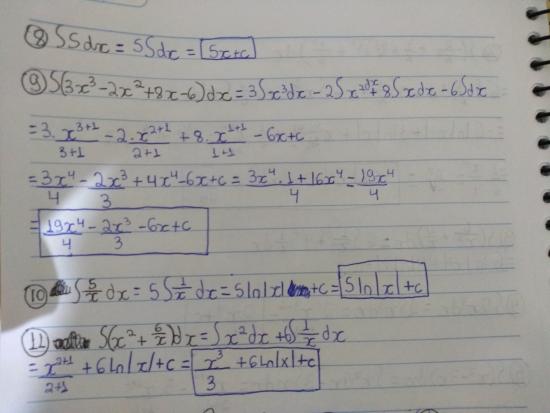 ⑧ ∫5dx = 5∫dx = 5x+c
⑨ ∫(3x³-2x²+8x-6)dx = 3∫x³dx - 2∫x²dx + 8∫xdx - 6∫dx
= 3. x³⁺¹/3+1 - 2. x²⁺¹/2+1 + 8. x¹⁺¹/1+1 - 6x+c
= 3x⁴/4 - 2x³/3 + 4x⁴-6x+c = 3x⁴.1+16x⁴/4 = 19x⁴/4
= 19x⁴/4 - 2x³/3 - 6x+c
⑩ ∫5/x dx = 5∫1/x dx = 5ln|x| +c = 5ln|x|+c
⑪ ∫(x² + 6/x)dx = ∫x²dx + 6∫1/x dx
= x²⁺¹/2+1 + 6ln|x|+c = x³/3 + 6ln|x|+c